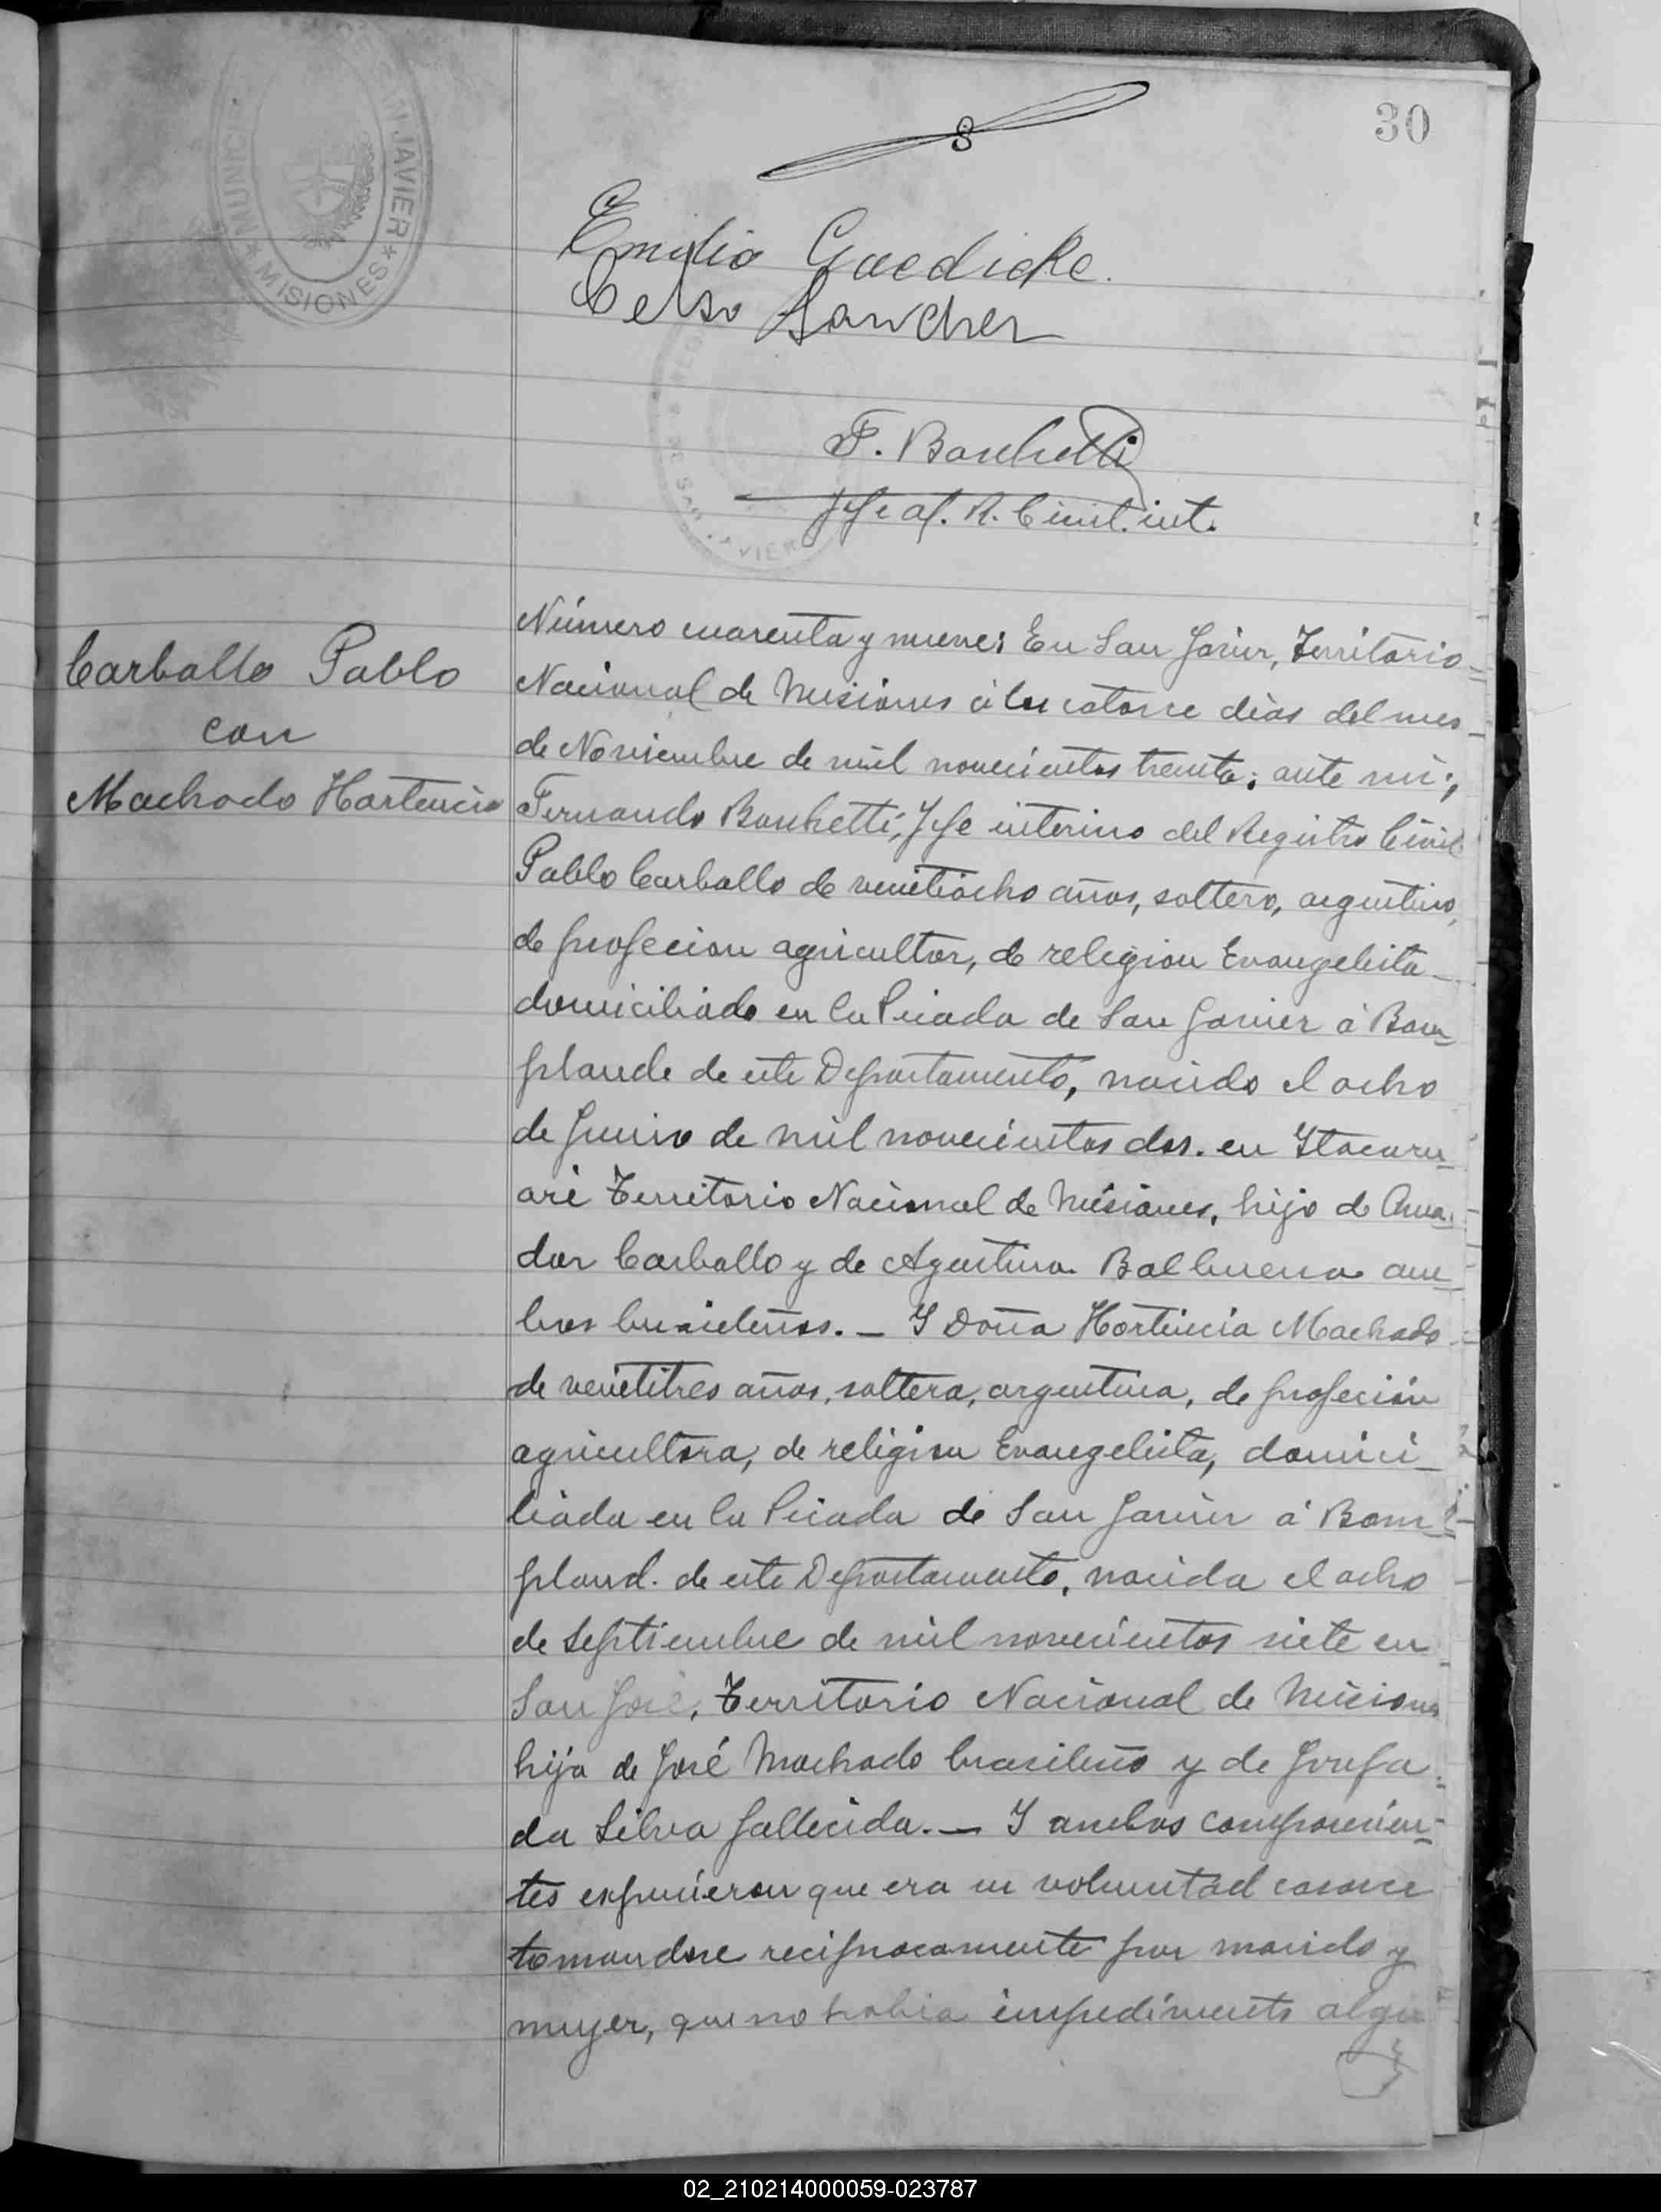 30
8
MUNICI SAN JAVIER
* MISIONES *
Emilio Gaedicke.
Celso Sanchez
F. Banchetti
Jefe of. R. Civil. int.
Carballo Pablo
con
Machado Hortencia
Número cuarenta y nueve: En San Javier, Territorio
Nacional de Misiones á los catorce dias del mes
de Noviembre de mil novecientos treinta; ante mi;
Fernando Banchetti, Jefe interino del Registro Civil
Pablo Carballo de veintiocho años, soltero, argentino,
de profecion agricultor, de religion Evangelista
domiciliado en la Picada de San Javier á Bom
plande de este Departamento, nacido el ocho
de Junio de mil novecientos dos. en Itacaru
aré Territorio Nacional de Misiones, hijo de Ama
dor Carballo y de Agustina Balbuena am
bos brasileños. — Y Doña Hortencia Machado
de veintitres años, soltera, argentina, de profeción
agricultora, de religion Evangelista, domici
liada en la Picada de San Javier á Bom
pland. de este Departamento, nacida el ocho
de Septiembre de mil novecientos siete en
San José, Territorio Nacional de Misiones
hija de José Machado brasileño y de Josefa
da Silva fallecida. — Y ambos comparecien
tes expucieron que era su voluntad casarce
tomandose reciprocamente por marido y
muger, que no habia impedimento algu
02_210214000059-023787